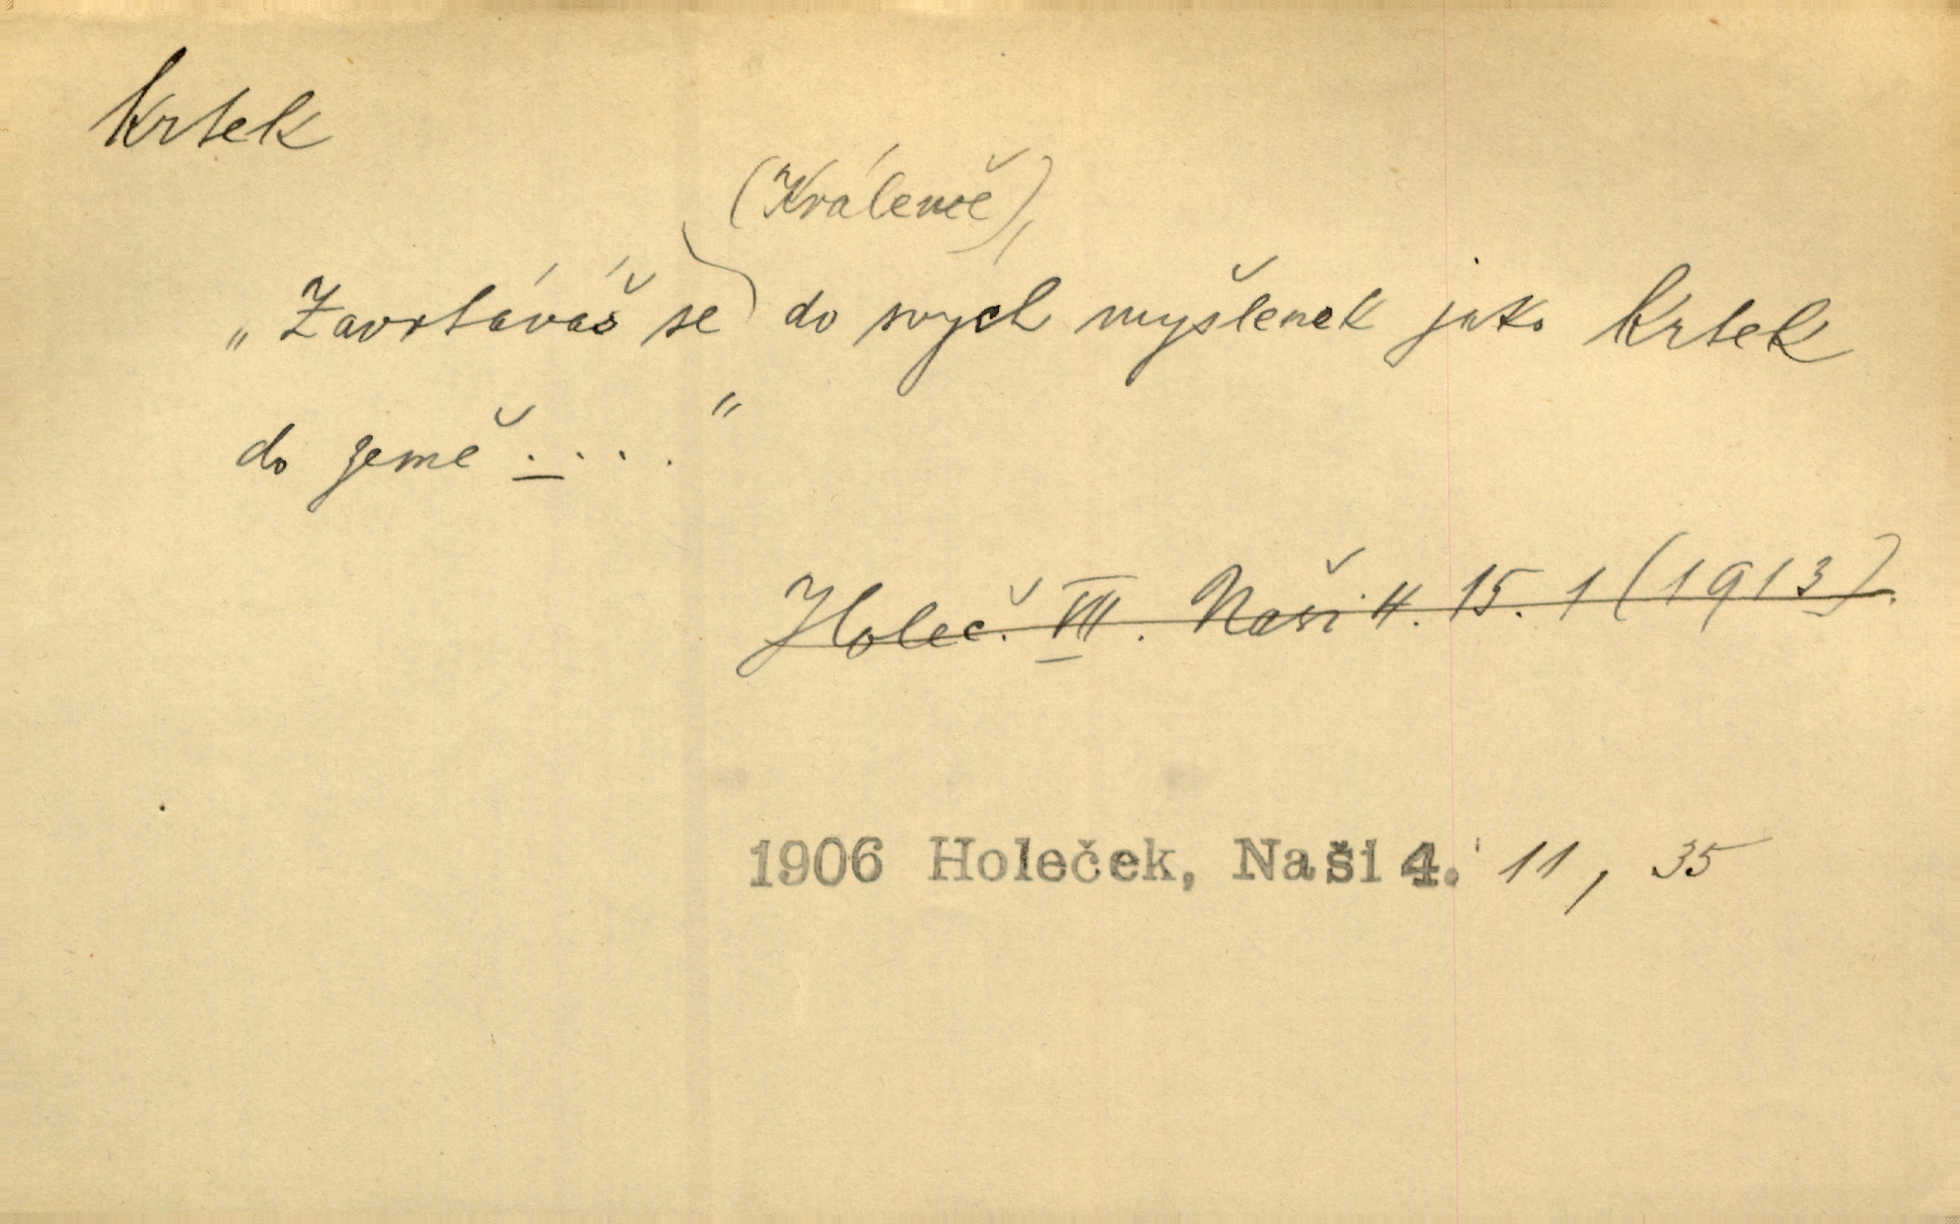 krtek
(Králenče),
„Zavrtáváš se do svých myšlenek jako krtek
do země . . . . "
Holeč. VII. Naši 4. 15. 1 (1913).
1906 Holeček, Naši 4. 11, 35